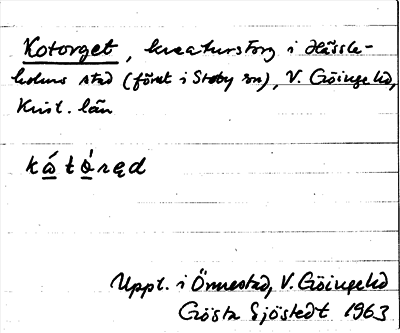 Kotorget, kreaturstorg i Hässle-
holms stad (föret i Stoby sn), V. Göinge hd,
Krist. län
kǻtó̱ręd
Uppt. i Önnestad, V. Göinge hd
Gösta Sjöstedt 1963